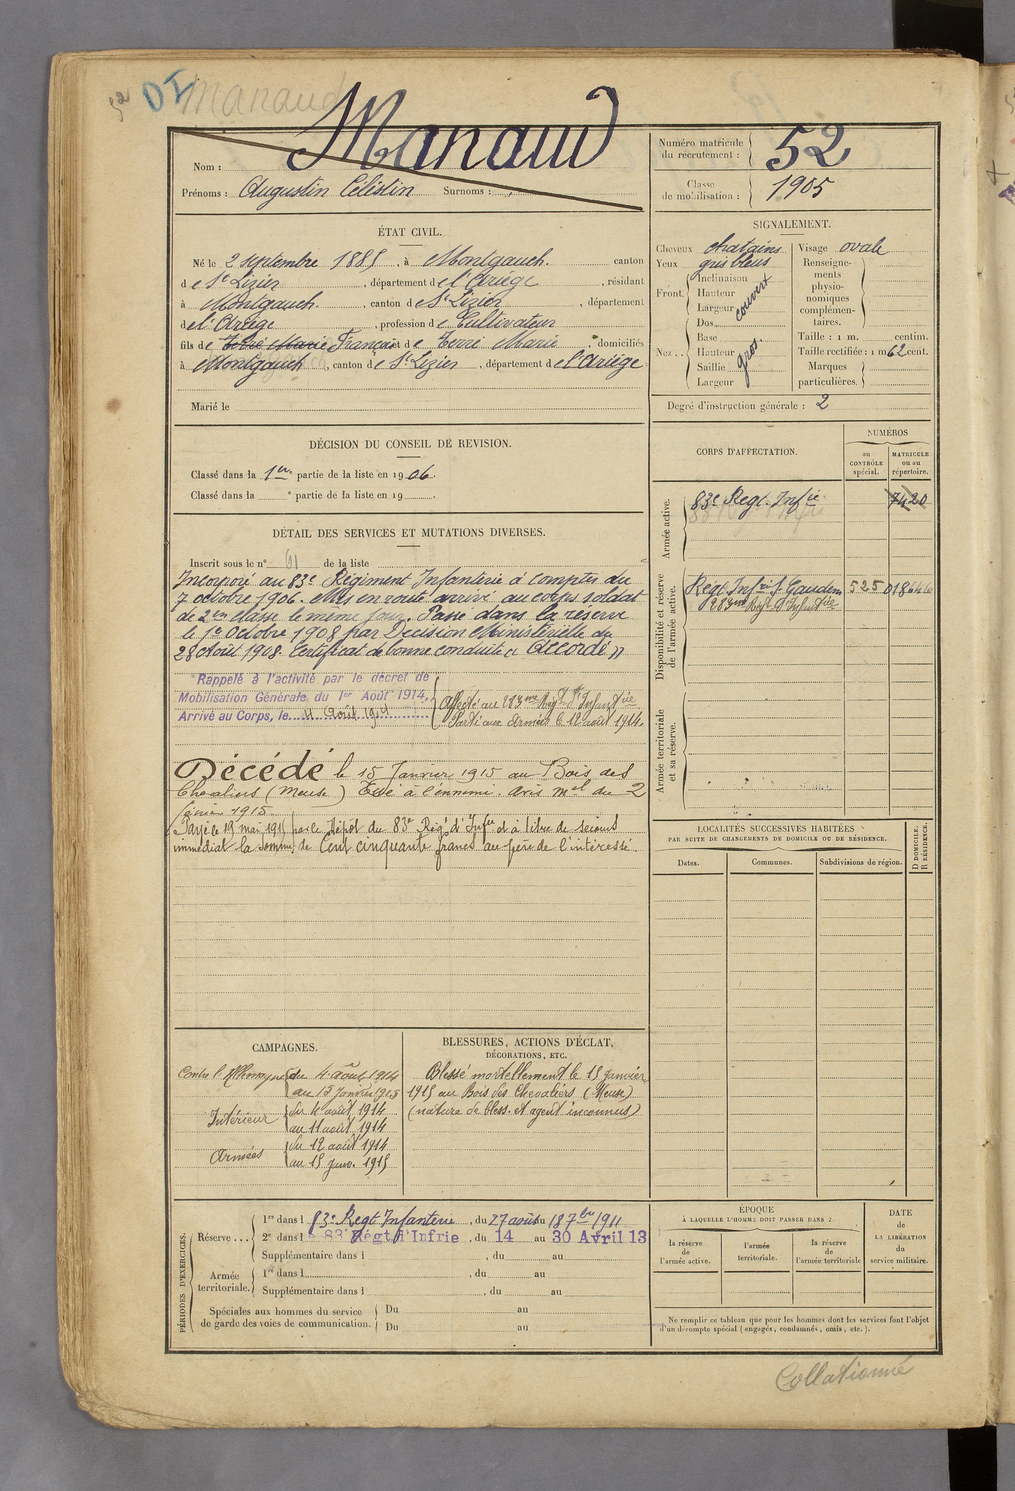 52 DI Manaud
Nom : Manaud
Prénoms : Augustin Célestin Surnoms :
Numéro matricule du recrutement : 52
Classe de mobilisation : 1905
ÉTAT CIVIL.
Né le 2 septembre 1885, à Montgauch. canton
de St Lizier, département de l'Ariège, résidant
à Montgauch, canton de St Lizier, département
de l'Ariège, profession de Cultivateur
fils de François et de Terré Marie domiciliés
à Montgauch, canton de St Lizier, département de l'Ariège
Marié le
SIGNALEMENT.
Cheveux chatains
Yeux gris bleus
Front. Inclinaison
Hauteur
Largeur
couvert
Nez. Dos
Base
Hauteur
Saillie
Largeur
gros.
Visage ovale
Renseignements physionomiques complémentaires.
Taille : 1 m. centim.
Taille rectifiée : 1 m 62 cent.
Marques particulières.
Degré d'instruction générale : 2
DÉCISION DU CONSEIL DE REVISION.
Classé dans la 1re partie de la liste en 1906.
Classé dans la e partie de la liste en 19
DÉTAIL DES SERVICES ET MUTATIONS DIVERSES.
Inscrit sous le n° 61 de la liste
Incorporé au 83e Régiment Infanterie à compter du
7 octobre 1906. Mis en route arrivé au corps soldat
de 2me classe le même jour. Passé dans la réserve
le 1er Octobre 1908 par Décision Ministérielle du
28 Août 1908. Certificat de bonne conduite « Accordé »
Rappelé à l'activité par le décret de
Mobilisation Générale du 1er Août 1914.
Arrivé au Corps, le 4 Août 1914
Affecté au 283me Régt d'Infanterie
Parti aux armées le 12 août 1914.
Décédé le 15 Janvier 1915 au Bois des
Chevaliers (Meuse) Tué à l'ennemi. Avis mel du 2
février 1915.
Payé le 19 mai 1915 par le Dépôt du 83e Régt d'Infie et à titre de secours
immédiat la somme de Cent cinquante francs au père de l'intéressé.
CORPS D'AFFECTATION.
NUMÉROS
au CONTRÔLE spécial.
MATRICULE ou au répertoire.
Armée active.
83e Regt. Infie 7420
Disponibilité et réserve de l'armée active.
Régt Infie St Gaudens 525 018646
283me Régt d'Infanterie
Armée territoriale et sa réserve.
LOCALITÉS SUCCESSIVES HABITÉES
PAR SUITE DE CHANGEMENTS DE DOMICILE OU DE RÉSIDENCE.
Dates. Communes. Subdivisions de région. D DOMICILE. R RÉSIDENCE.
CAMPAGNES.
Contre l'Allemagne du 4 août 1914
au 15 janvier 1915
Intérieur du 4 août 1914
au 11 août 1914
Armées du 12 août 1914
au 15 janv. 1915
BLESSURES, ACTIONS D'ÉCLAT,
DÉCORATIONS, ETC.
Blessé mortellement le 15 janvier
1915 au Bois des Chevaliers (Meuse)
(nature de bless. et agent inconnus)
PÉRIODES D'EXERCICES.
Réserve... 1re dans l 83e Regt Infanterie, du 27 août au 18 7bre 1911
2e dans l e 83e Régt d'Infrie, du 14 au 30 Avril 13
Supplémentaire dans l , du au
Armée territoriale. 1re dans l , du au
Supplémentaire dans l , du au
Spéciales aux hommes du service
de garde des voies de communication. Du au
Du au
ÉPOQUE
À LAQUELLE L'HOMME DOIT PASSER DANS :
la réserve de l'armée active.
l'armée territoriale.
la réserve de l'armée territoriale
DATE de LA LIBÉRATION du service militaire.
Ne remplir ce tableau que pour les hommes dont les services font l'objet
d'un décompte spécial (engagés, condamnés, omis, etc.).
Collationné